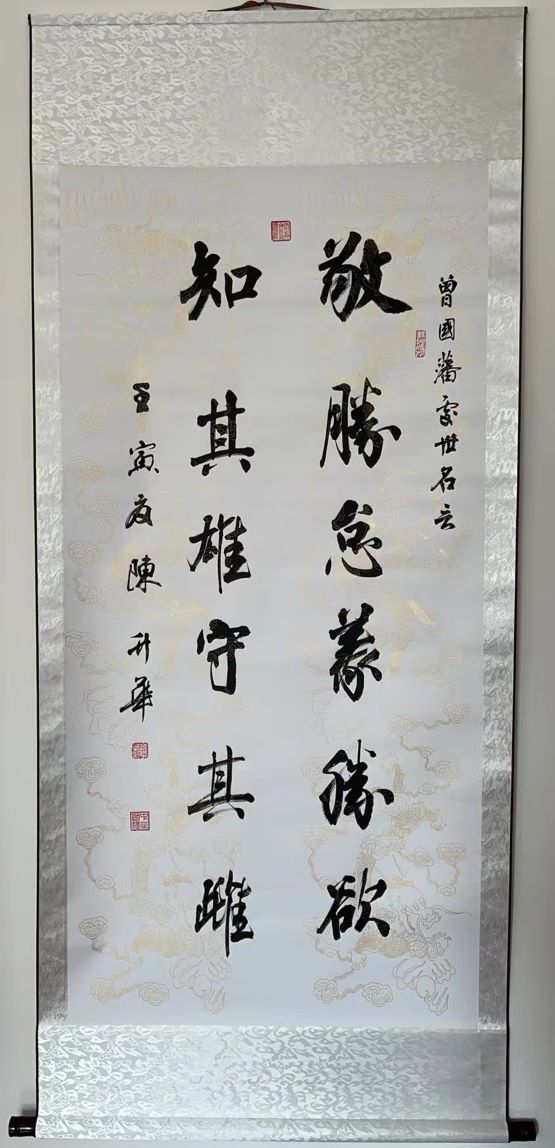 曾國藩處世名言
敬勝怠義勝欲
知其雄守其雌
壬寅夏陳升華